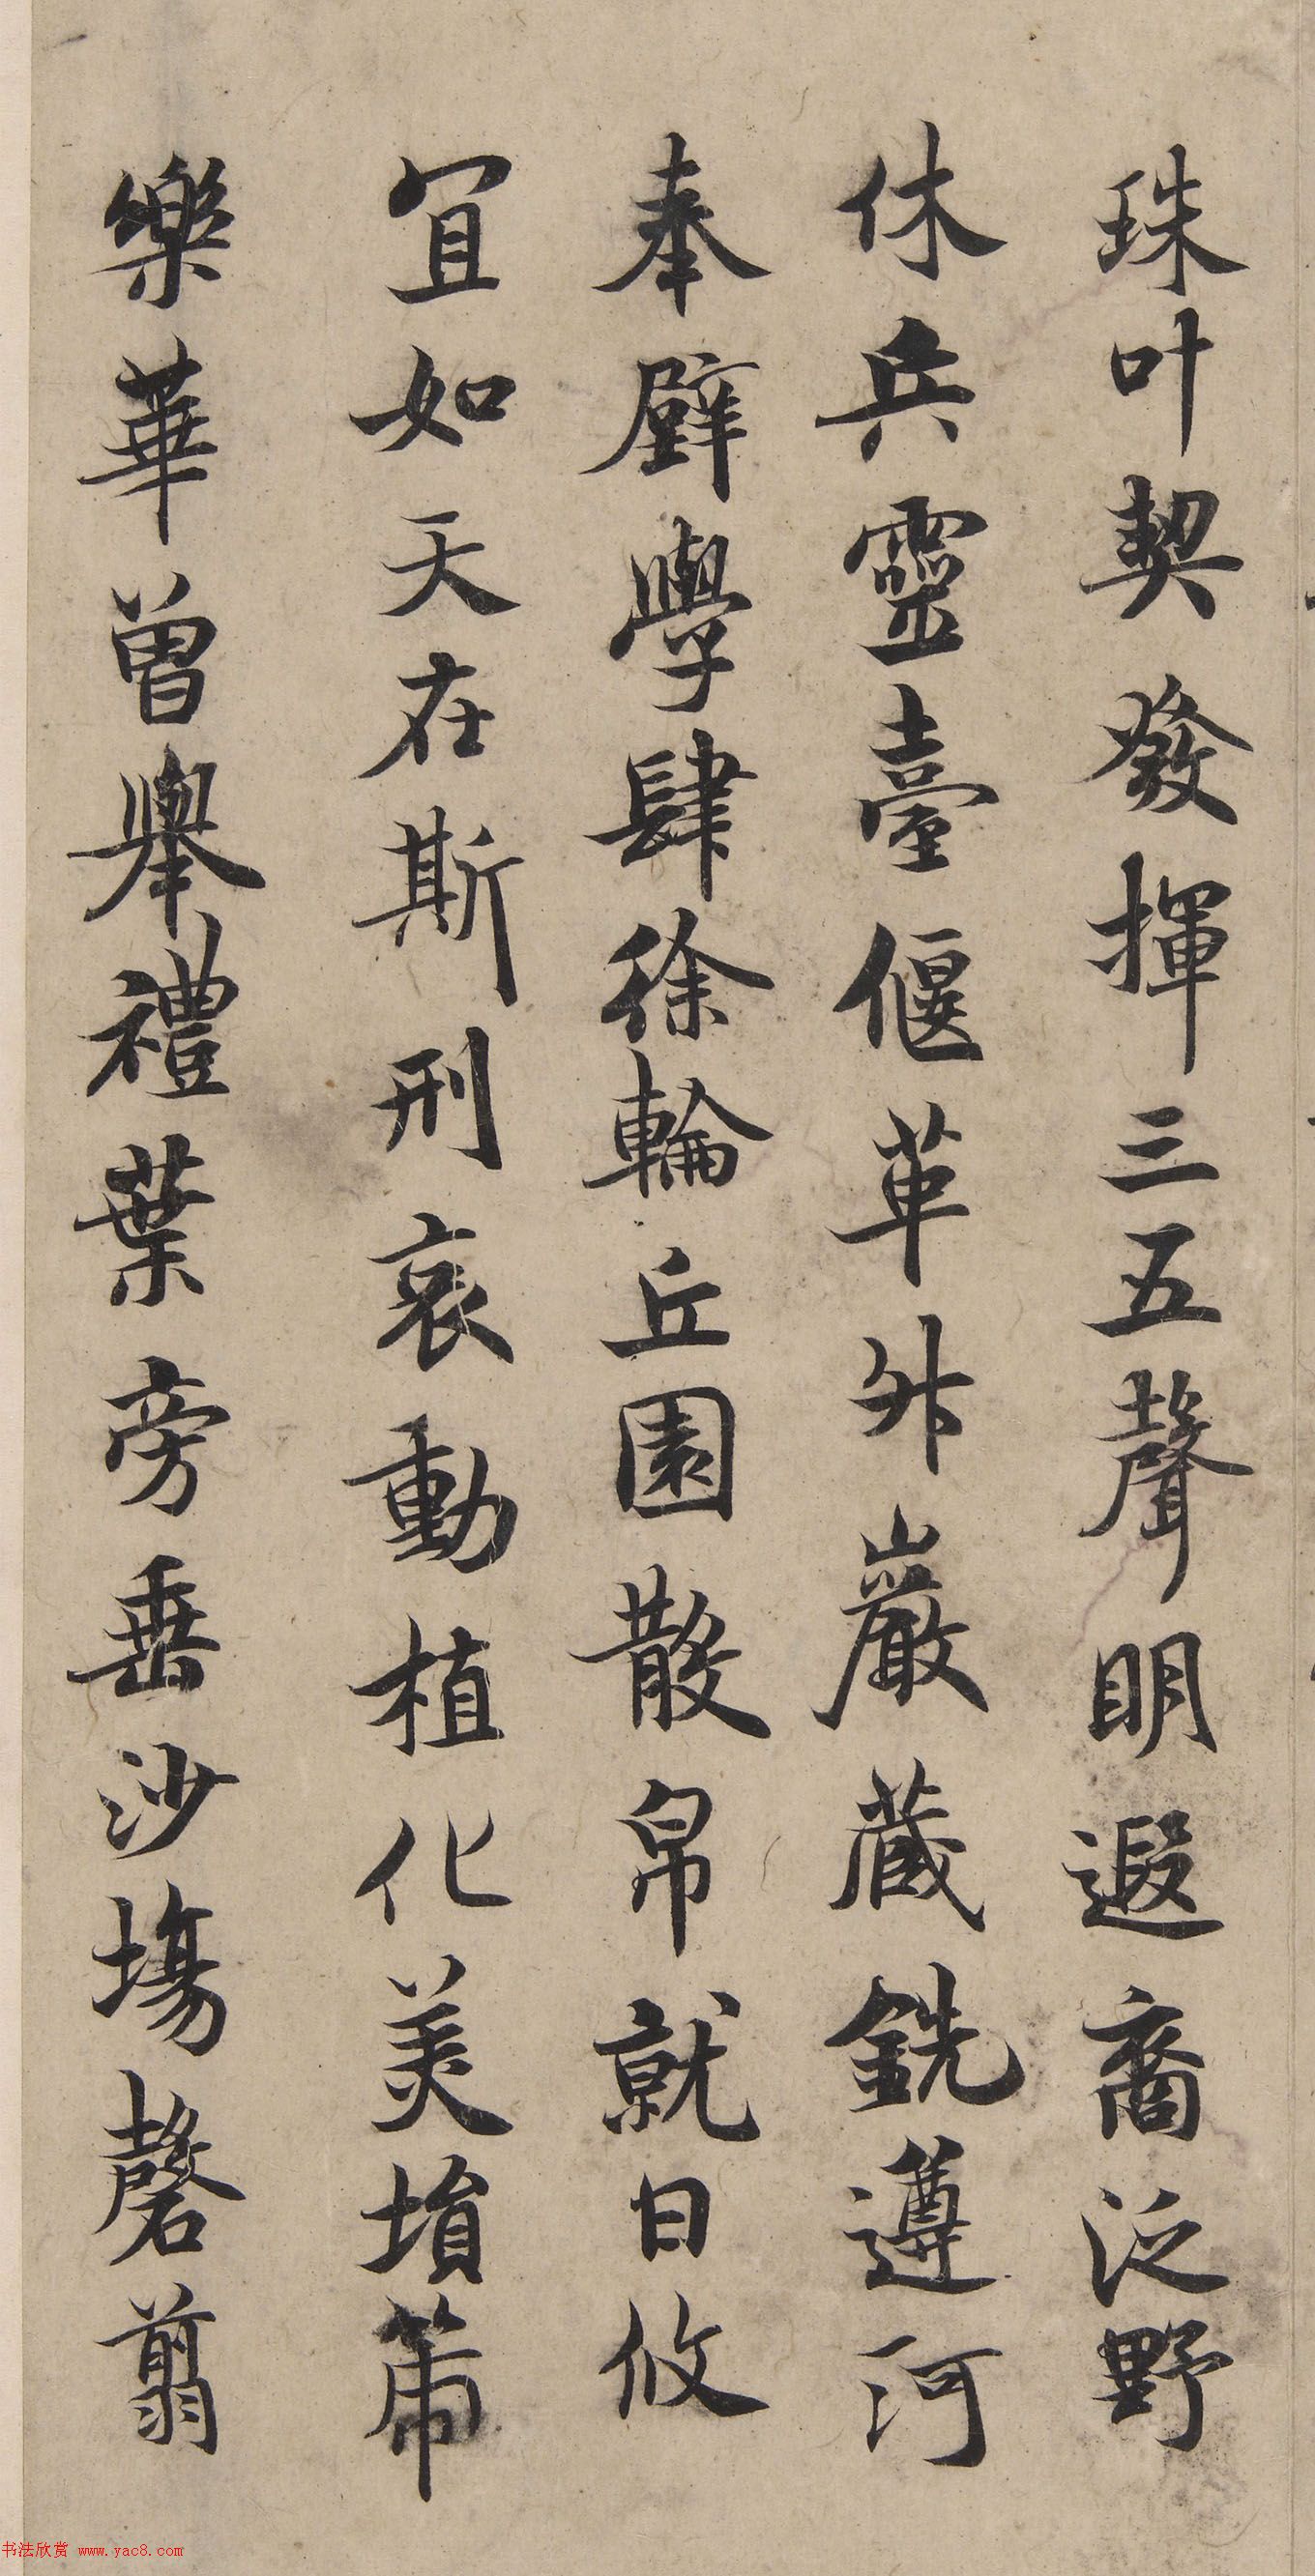 珠叶契發揮三五聲明遐裔泛野
休兵靈臺偃革舛巖蔵銑遵河
奉璧學肆徐輪丘園散帛就日攸
宜如天在斯刑哀動植化美埙箒
樂華曽舉禮葉旁垂沙塲磬翦
书法欣赏 www.yac8.com